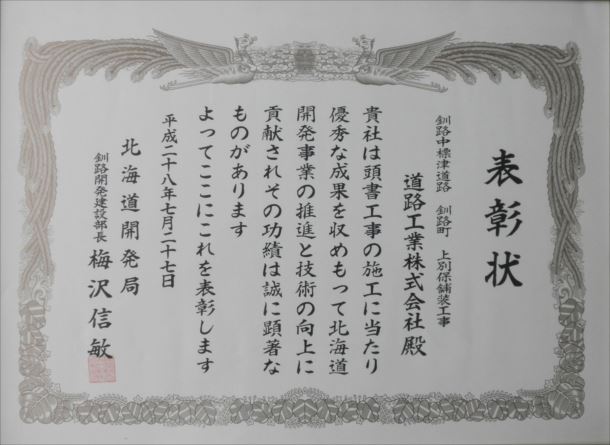 表彰状
釧路中標津道路 釧路町 上別保舗装工事
道路工業株式会社殿
貴社は頭書工事の施工に当たり
優秀な成果を収めもって北海道
開発事業の推進と技術の向上に
貢献されその功績は誠に顕著な
ものがあります
よってここにこれを表彰します
平成二十八年七月二十七日
北海道開発局
釧路開発建設部長 梅沢信敏